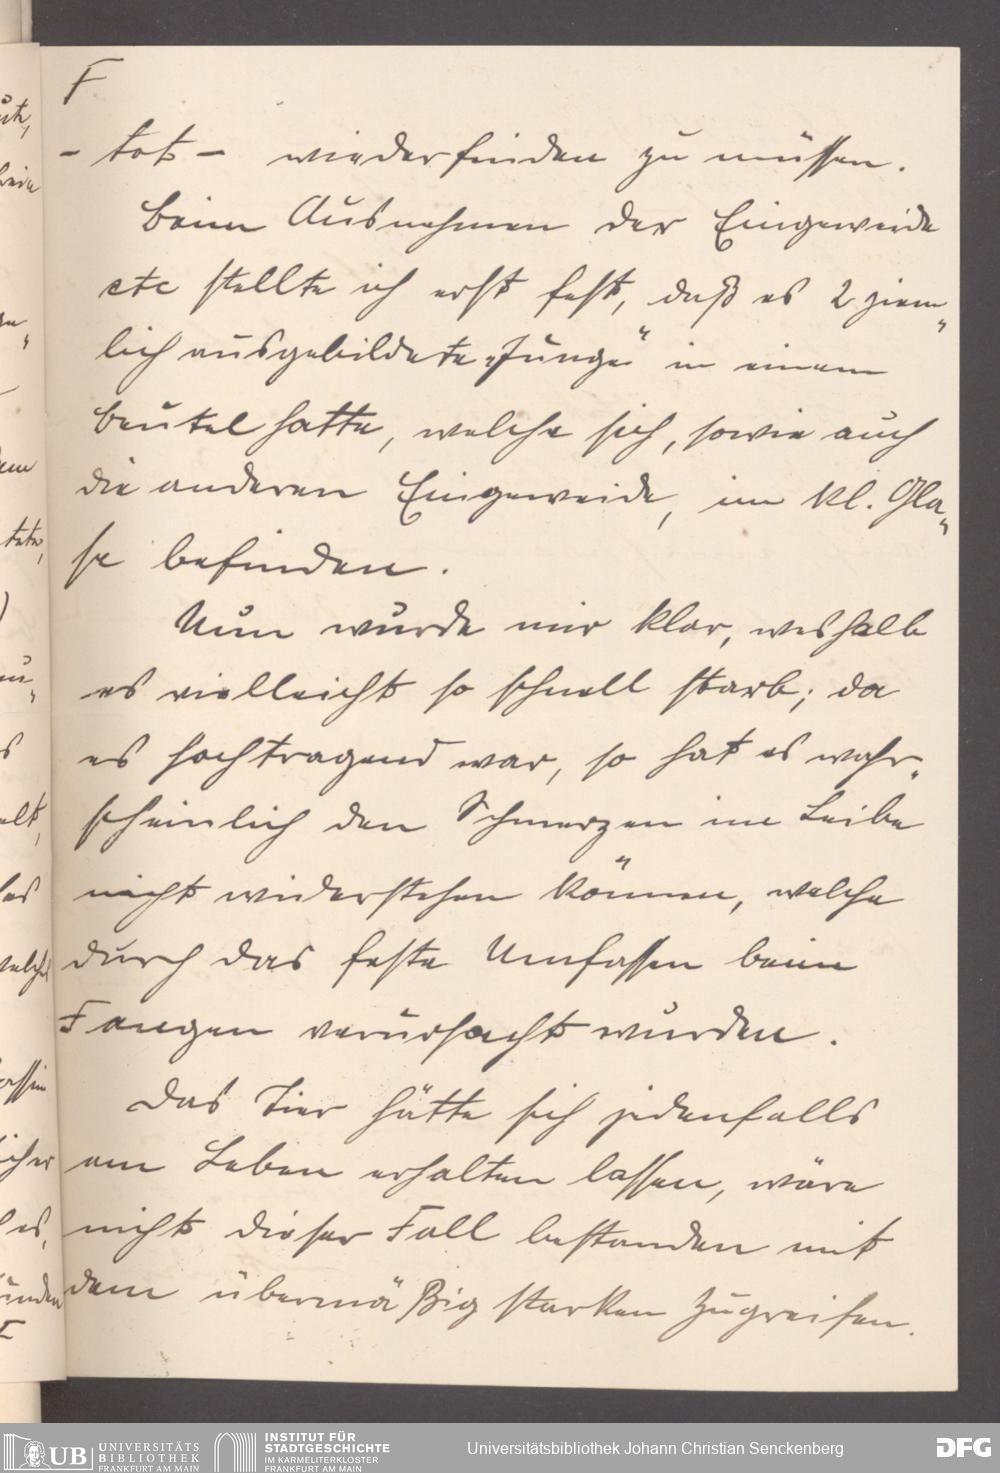 F
– tot – wiederfinden zu müssen.
Beim Ausnehmen der Eingeweide
etc stellte ich erst fest, daß es 2 ziem„
lich ausgebildete „Junge“ in einem
Beutel hatte, welche sich, sowie auch
die anderen Eingeweide, im kl. Gla„
se befinden.
Nun wurde mir klar, weshalb
es vielleicht so schnell starb; da
es hochtragend war, so hat es wahr„
scheinlich den Schmerzen im Leibe
nicht widerstehen können, welche
durch das feste Umfassen beim
Fangen verursacht wurden.
Das Tier hätte sich jedenfalls
am Leben erhalten lassen, wäre
nicht dieser Fall bestanden mit
dem übermäßig starken Zugreifen.
UB UNIVERSITÄTS BIBLIOTHEK FRANKFURT AM MAIN
INSTITUT FÜR STADTGESCHICHTE IM KARMELITERKLOSTER FRANKFURT AM MAIN
Universitätsbibliothek Johann Christian Senckenberg
DFG